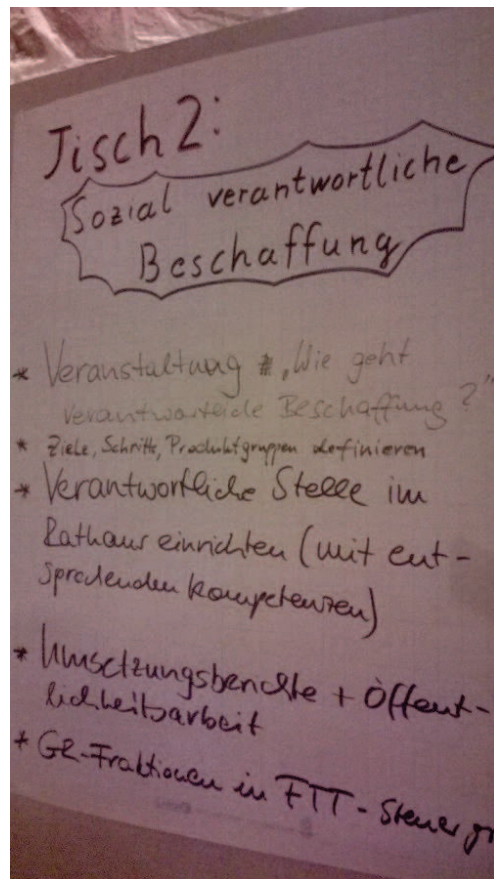 Tisch 2:
Sozial verantwortliche
Beschaffung
* Veranstaltung „Wie geht
verantwortliche Beschaffung?"
* Ziele, Schritte, Produktgruppen definieren
* Verantwortliche Stelle im
Rathaus einrichten (mit ent-
sprechenden Kompetenzen)
* Umsetzungsberichte + Öffent-
lichkeitsarbeit
* GR-Fraktionen in FTT-Steuergr